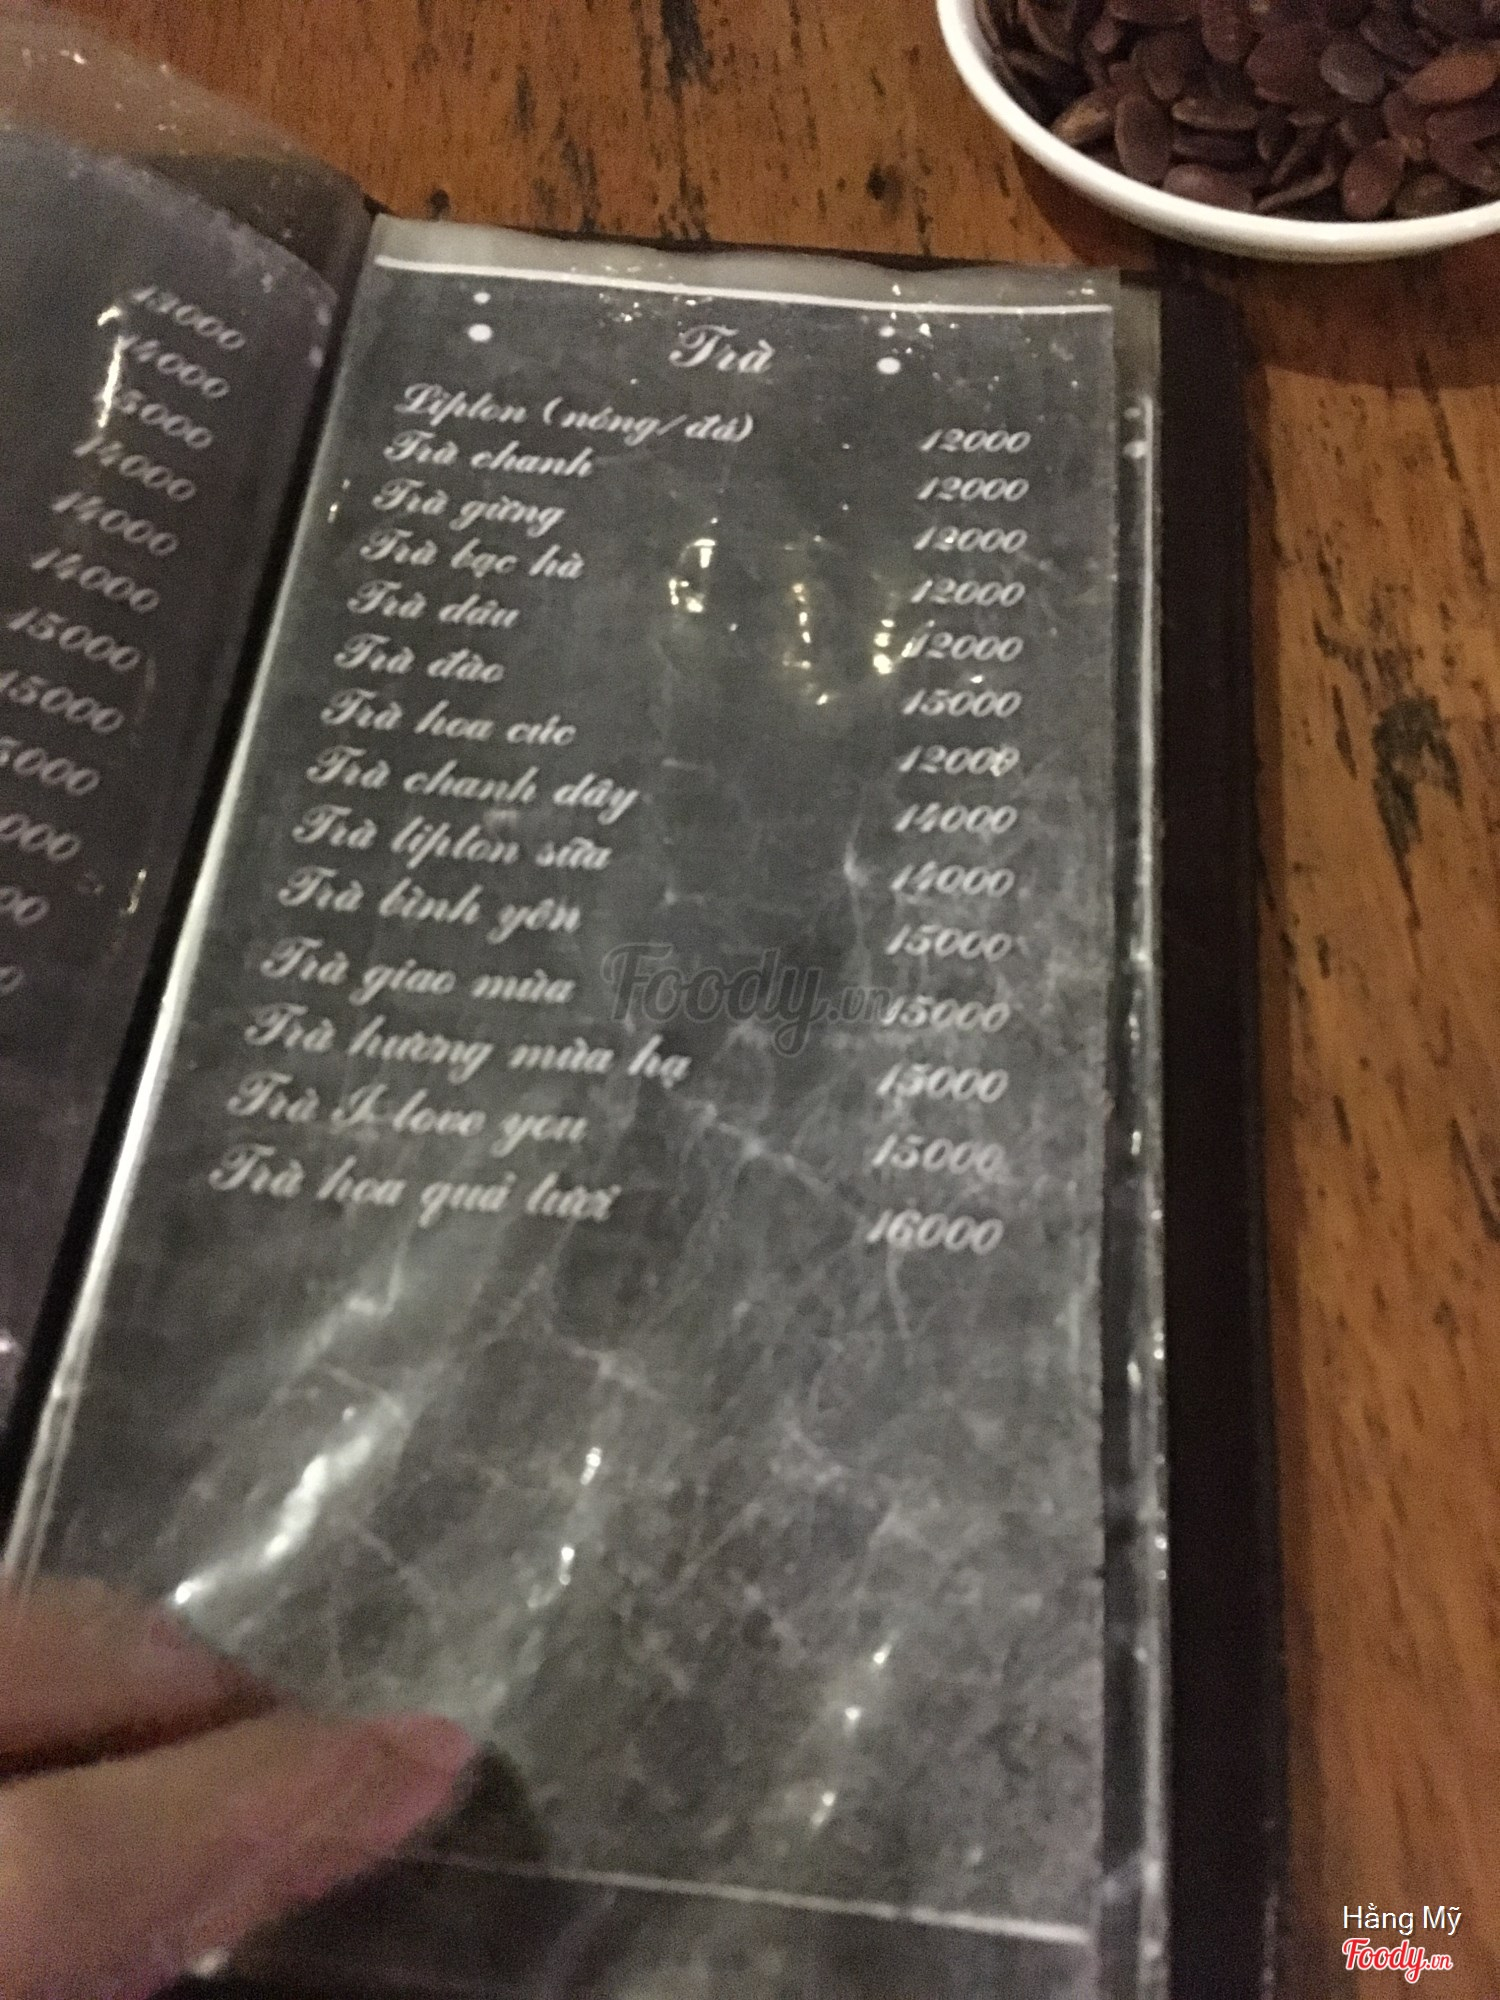 13000
14000
15000
14000
14000
14000
15000
15000
Trà
Lipton (nóng/đá) 12000
Trà chanh 12000
Trà gừng 12000
Trà bạc hà 12000
Trà dâu 12000
Trà đào 15000
Trà hoa cúc 12000
Trà chanh dây 14000
Trà lipton sữa 14000
Trà bình yên 15000
Trà giao mùa 15000
Trà hương mùa hạ 15000
Trà I love you 15000
Trà hoa quả tươi 16000
Foody.vn
Hằng Mỹ
Foody.vn